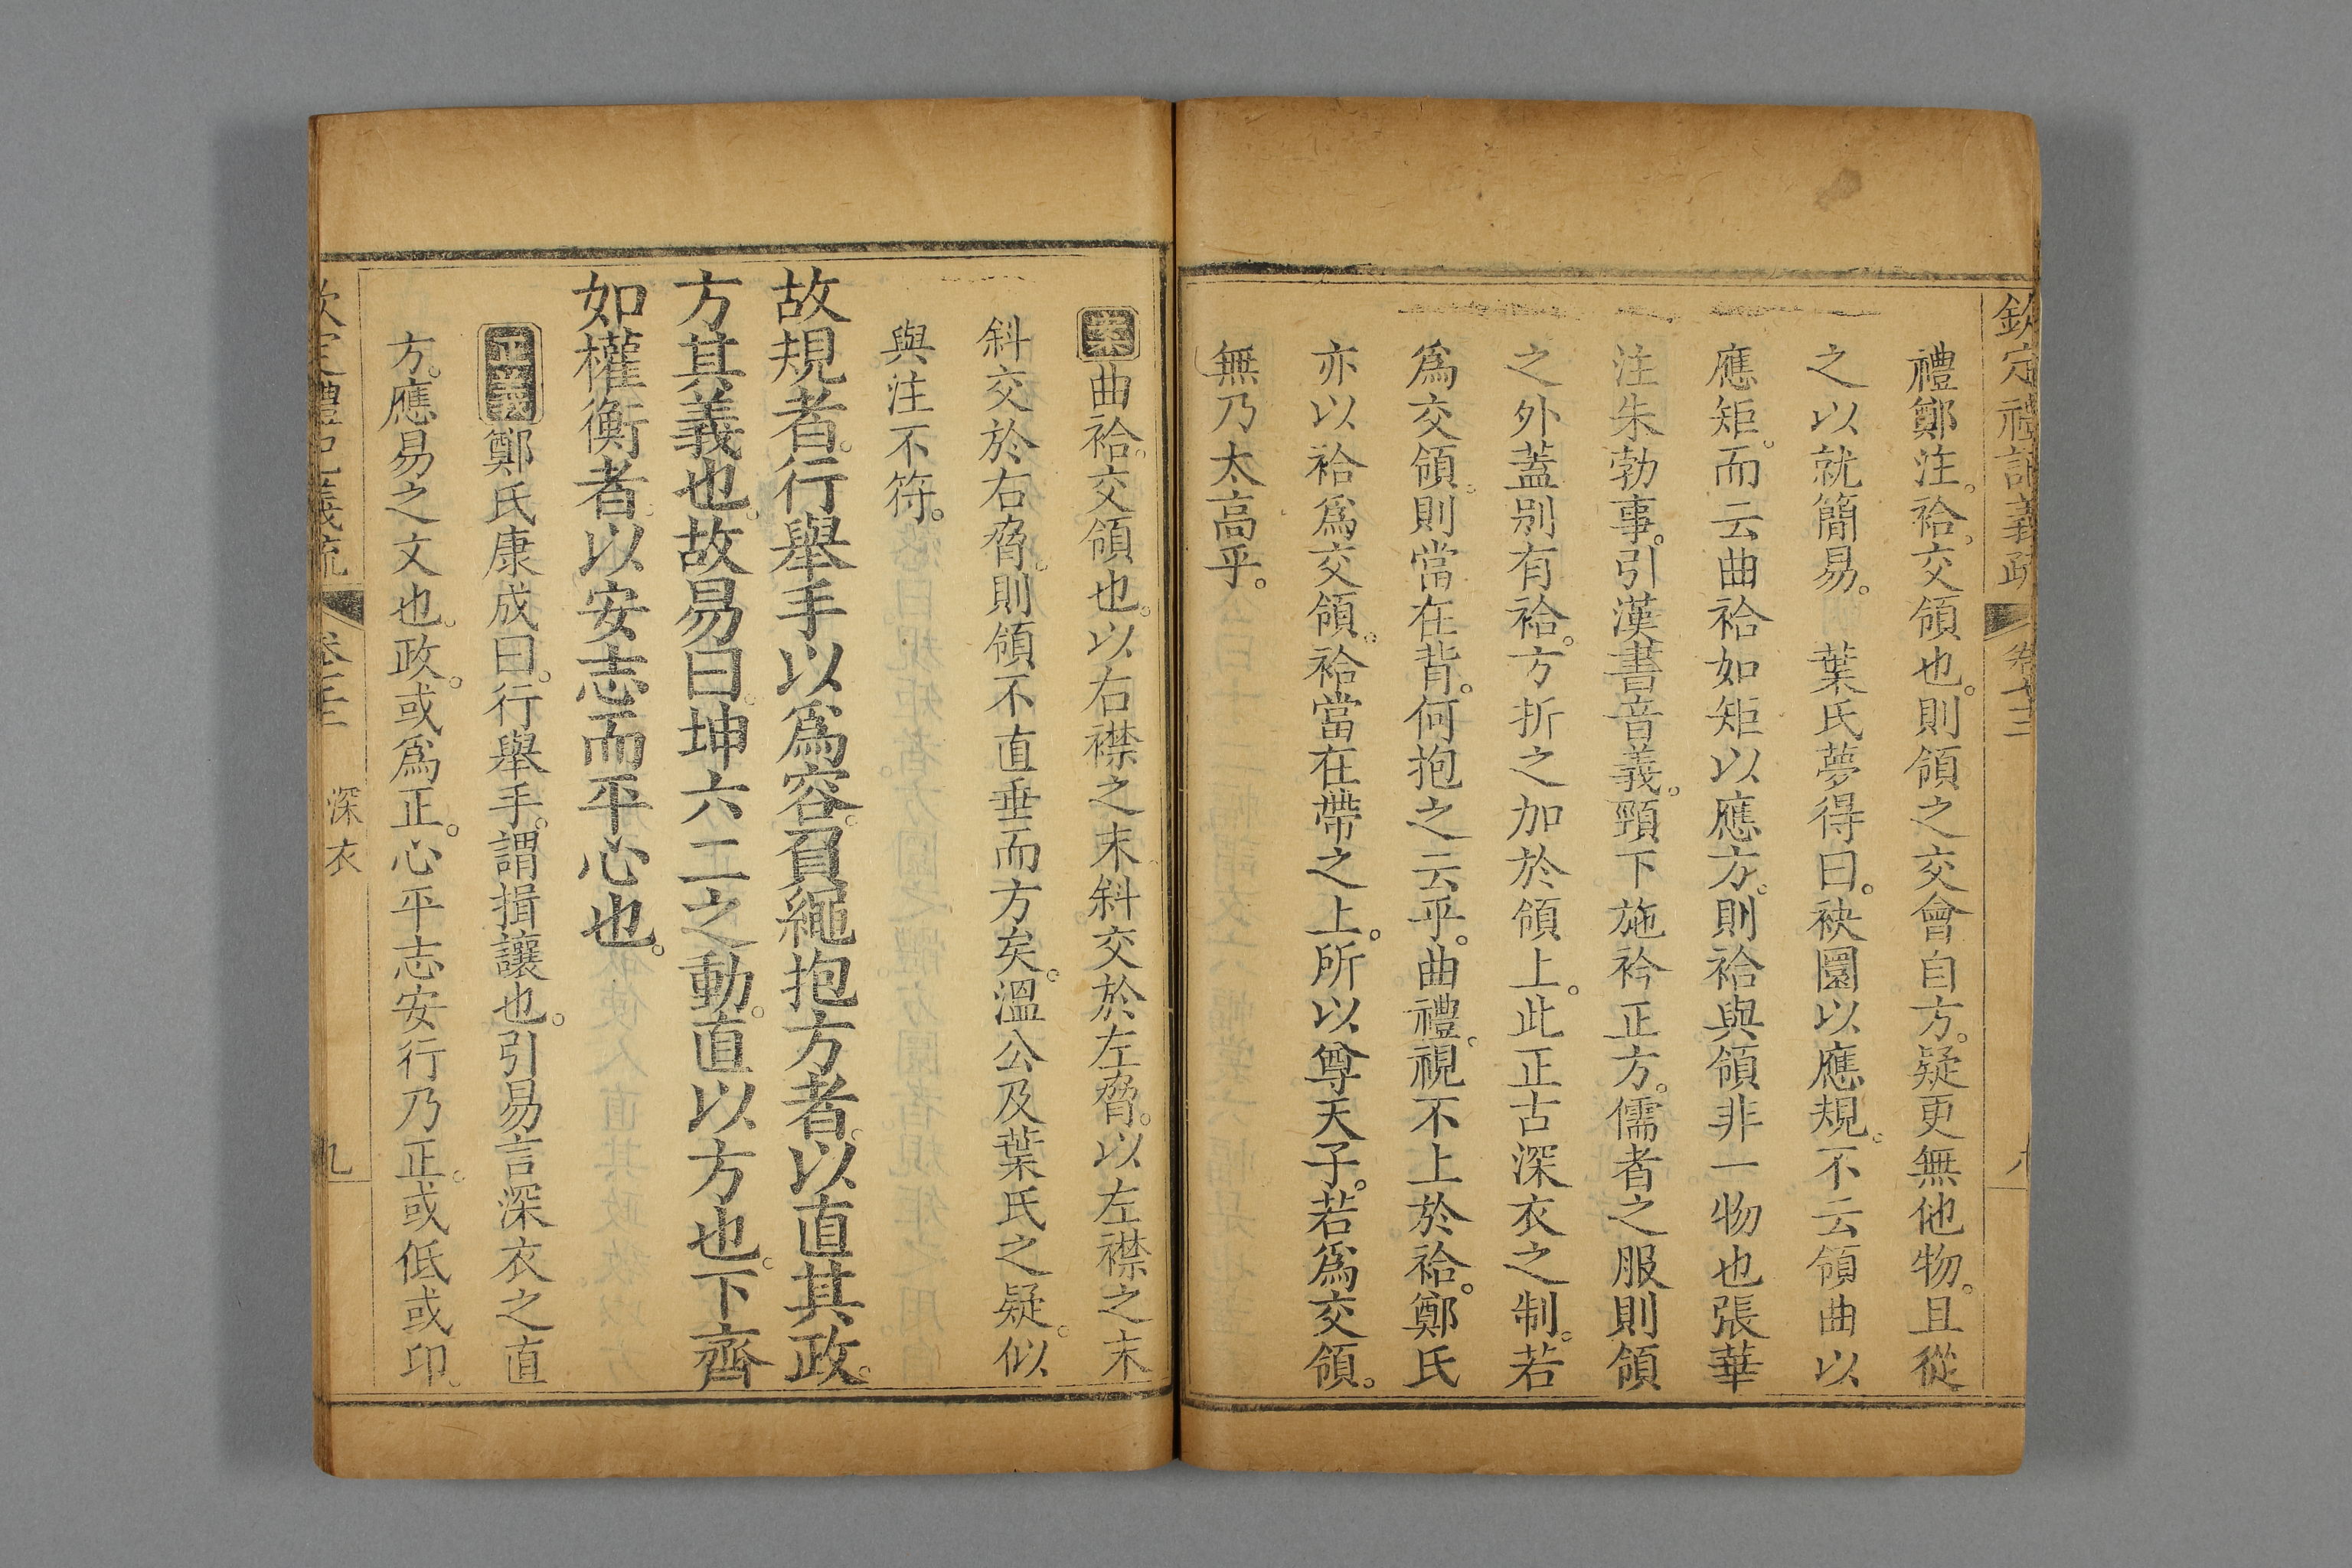 欽定禮記義疏 卷七十三 八
禮鄭注。袷。交領也。則領之交會自方。疑更無他物。且從
之以就簡易。 葉氏夢得曰。袂圜以應規。不云領曲以
應矩。而云曲袷如矩以應方。則袷與領非一物也張華
注朱勃事。引漢書音義。頸下施衿正方。儒者之服則領
之外蓋别有袷。方折之加於領上。此正古深衣之制。若
爲交領。則當在背。何抱之云乎。曲禮。視不上於袷。鄭氏
亦以袷爲交領。袷當在帶之上。所以尊天子。若爲交領。
無乃太高乎。
案曲袷。交領也。以右襟之末斜交於左脅。以左襟之末
斜交於右脅。則領不直垂而方矣。溫公及葉氏之疑。似
與注不符。
故規者。行舉手以爲容。負繩抱方者。以直其政。
方其義也。故易曰。坤六二之動。直以方也。下齊
如權衡者。以安志而平心也。
正義鄭氏康成曰。行舉手。謂揖讓也。引易言深衣之直
方。應易之文也。政。或爲正。心平志安行乃正。或低或卬。
欽定禮記義疏 深衣 九